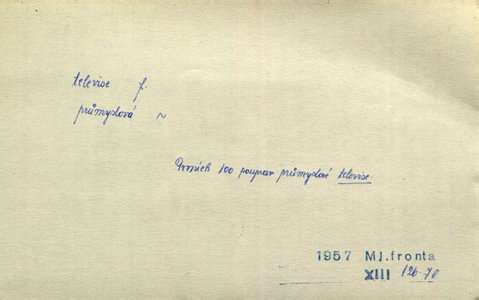 televise f.
průmyslová ~
Prvních 100 souprav průmyslové televise
1957 Ml. fronta
XIII 126-7